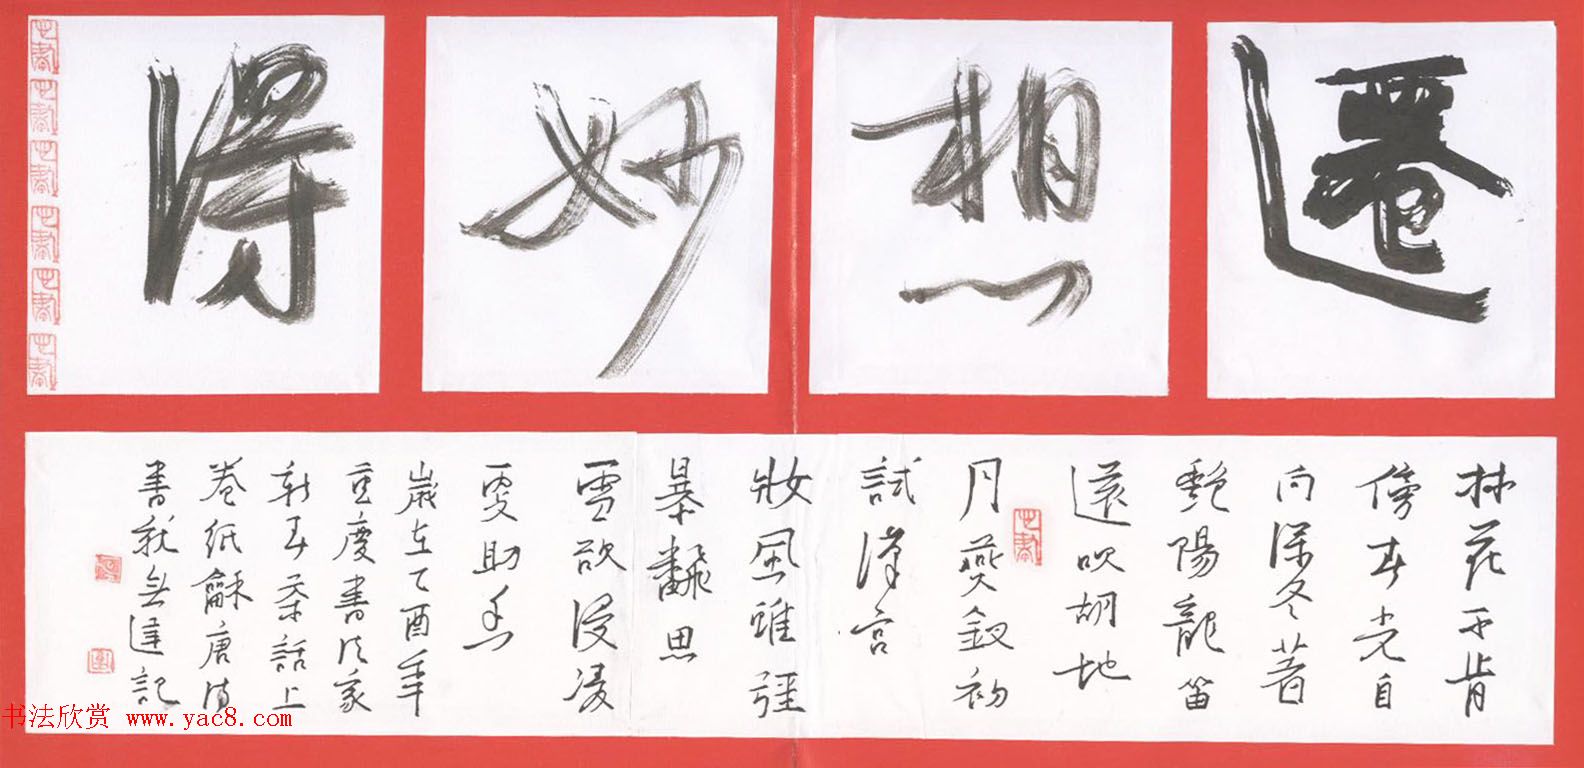 遷想妙得
林花不肯
傍春光自
向深冬著
艷陽龍笛
遠吹胡地
月燕釵初
試漢宮
妝風雖強
暴翻思
雪欲侵凌
更助香
歲在乙酉年
重慶書法家
新春茶話上
卷紙龢唐詩
書就無違記
书法欣赏 www.yac8.com